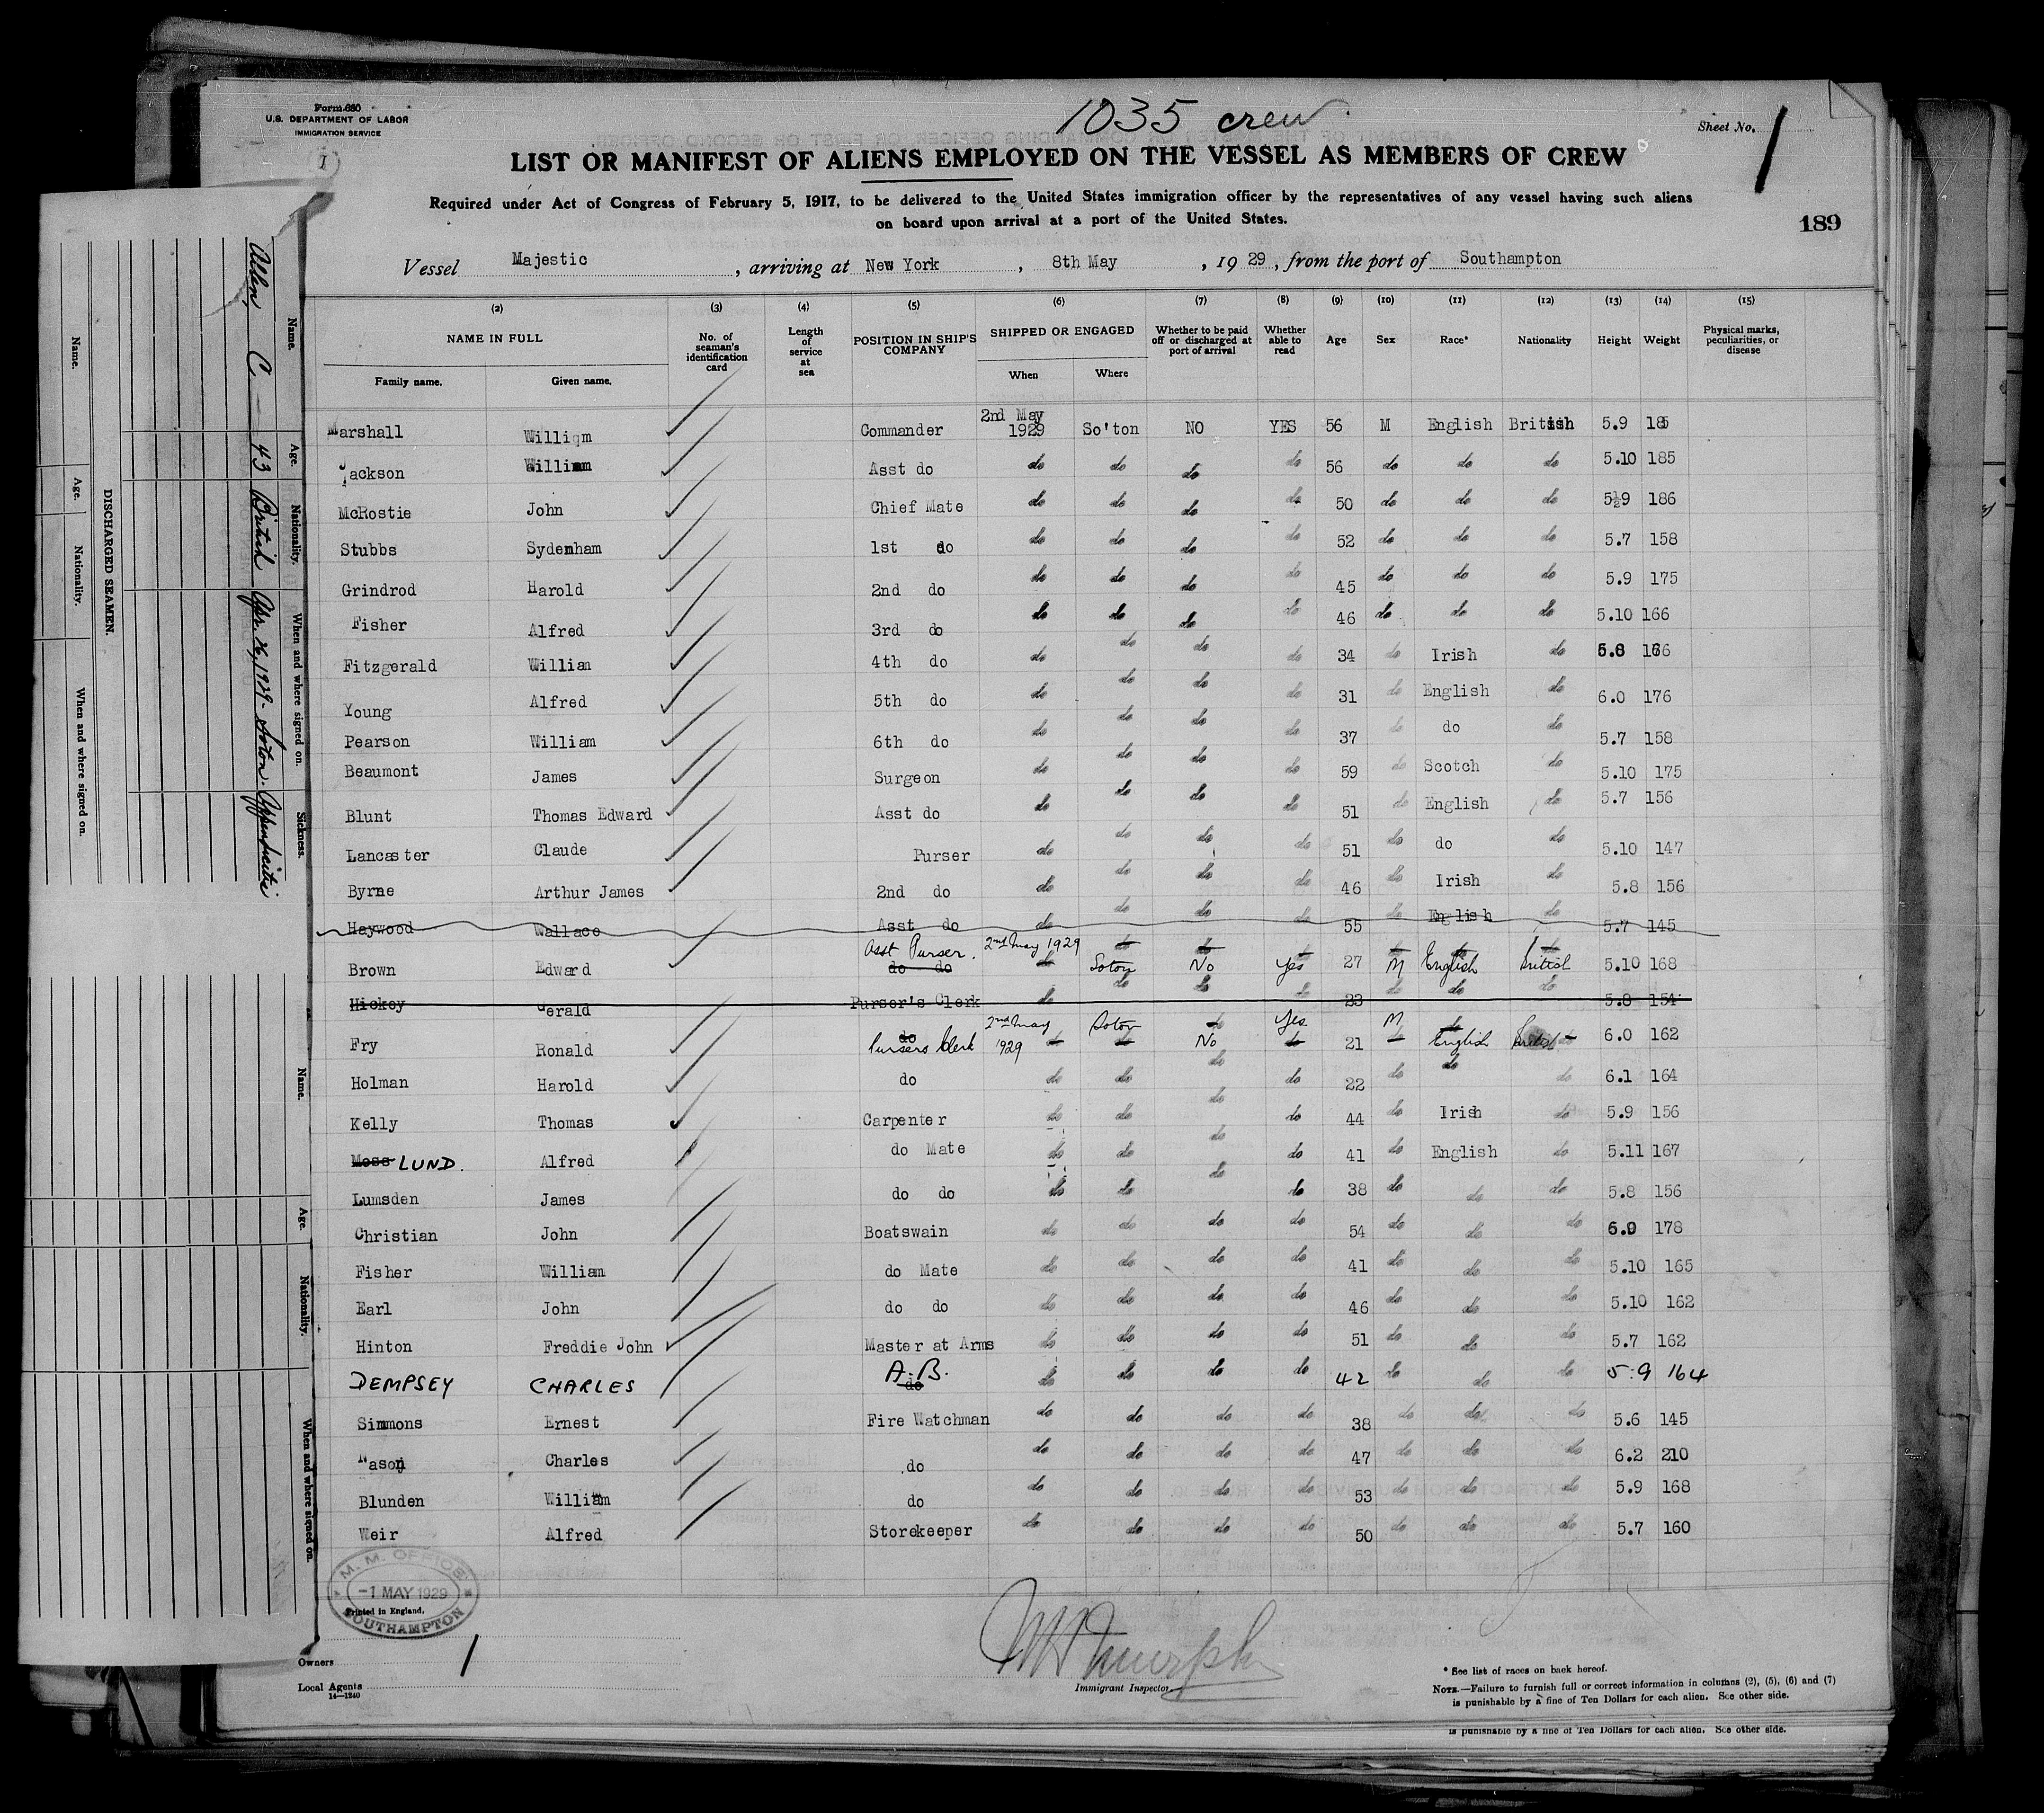 Form 680
U.S. DEPARTMENT OF LABOR
IMMIGRATION SERVICE
1
1035 crew
Sheet No. 1
LIST OR MANIFEST OF ALIENS EMPLOYED ON THE VESSEL AS MEMBERS OF CREW
Required under Act of Congress of February 5, 1917, to be delivered to the United States immigration officer by the representatives of any vessel having such aliens
on board upon arrival at a port of the United States.
189
Vessel Majestic, arriving at New York, 8th May, 1929, from the port of Southampton
(2) (3) (4) (5) (6) (7) (8) (9) (10) (11) (12) (13) (14) (15)
NAME IN FULL No. of seaman's identification card Length of service at sea POSITION IN SHIP'S COMPANY SHIPPED OR ENGAGED Whether to be paid off or discharged at port of arrival Whether able to read Age Sex Race* Nationality Height Weight Physical marks, peculiarities, or disease
Family name. Given name. When Where
Marshall William Commander 2nd May 1929 So'ton NO YES 56 M English British 5.9 185
Jackson William Asst do do do do do 56 do do do 5.10 185
McRostie John Chief Mate do do do do 50 do do do 5½9 186
Stubbs Sydenham 1st do do do do do 52 do do do 5.7 158
Grindrod Harold 2nd do do do do do 45 do do do 5.9 175
Fisher Alfred 3rd do do do do do 46 do do do 5.10 166
Fitzgerald William 4th do do do do do 34 do Irish do 5.8 166
Young Alfred 5th do do do do do 31 do English do 6.0 176
Pearson William 6th do do do do do 37 do do do 5.7 158
Beaumont James Surgeon do do do do 59 do Scotch do 5.10 175
Blunt Thomas Edward Asst do do do do do 51 do English do 5.7 156
Lancaster Claude Purser do do do do 51 do do do 5.10 147
Byrne Arthur James 2nd do do do do do 46 do Irish do 5.8 156
Haywood Wallace Asst do do do do do 55 do English do 5.7 145
Asst Purser. 2nd May 1929 do do do do do do
Brown Edward do do do Soton No Yes 27 M English British 5.10 168
Hickey Gerald Purser's Clerk do do do do 23 do do do 5.8 154
do 2nd May Soton do Yes M do
Fry Ronald Pursers Clerk 1929 do do No do 21 English British 6.0 162
Holman Harold do do do do do 22 do do do 6.1 164
Kelly Thomas Carpenter do do do do 44 do Irish do 5.9 156
Moss LUND. Alfred do Mate do do do do 41 do English do 5.11 167
Lumsden James do do do do do do 38 do do do 5.8 156
Christian John Boatswain do do do do 54 do do do 6.9 178
Fisher William do Mate do do do do 41 do do do 5.10 165
Earl John do do do do do do 46 do do do 5.10 162
Hinton Freddie John Master at Arms do do do do 51 do do do 5.7 162
DEMPSEY CHARLES A.B. do do do do do 42 do do do 5.9 164
Simmons Ernest Fire Watchman do do do do 38 do do do 5.6 145
Charles do do do do do 47 do do do 6.2 210
Blunden William do do do do do 53 do do do 5.9 168
Weir Alfred Storekeeper do do do do 50 do do do 5.7 160
M. M. OFFICE
-1 MAY 1929
SOUTHAMPTON
Printed in England.
Owners
1
Local Agents
14—1240
Immigrant Inspector.
* See list of races on back hereof.
NOTE.—Failure to furnish full or correct information in columns (2), (5), (6) and (7)
is punishable by a fine of Ten Dollars for each alien. See other side.
is punishable by a fine of Ten Dollars for each alien. See other side.
Name. Age. Nationality. When and where signed on. Sickness.
Allen, C — 43 British Apr. 1929 - Soton. Appendicitis
DISCHARGED SEAMEN.
Name. Age. Nationality. When and where signed on.
Name. Age. Nationality. When and where signed on.